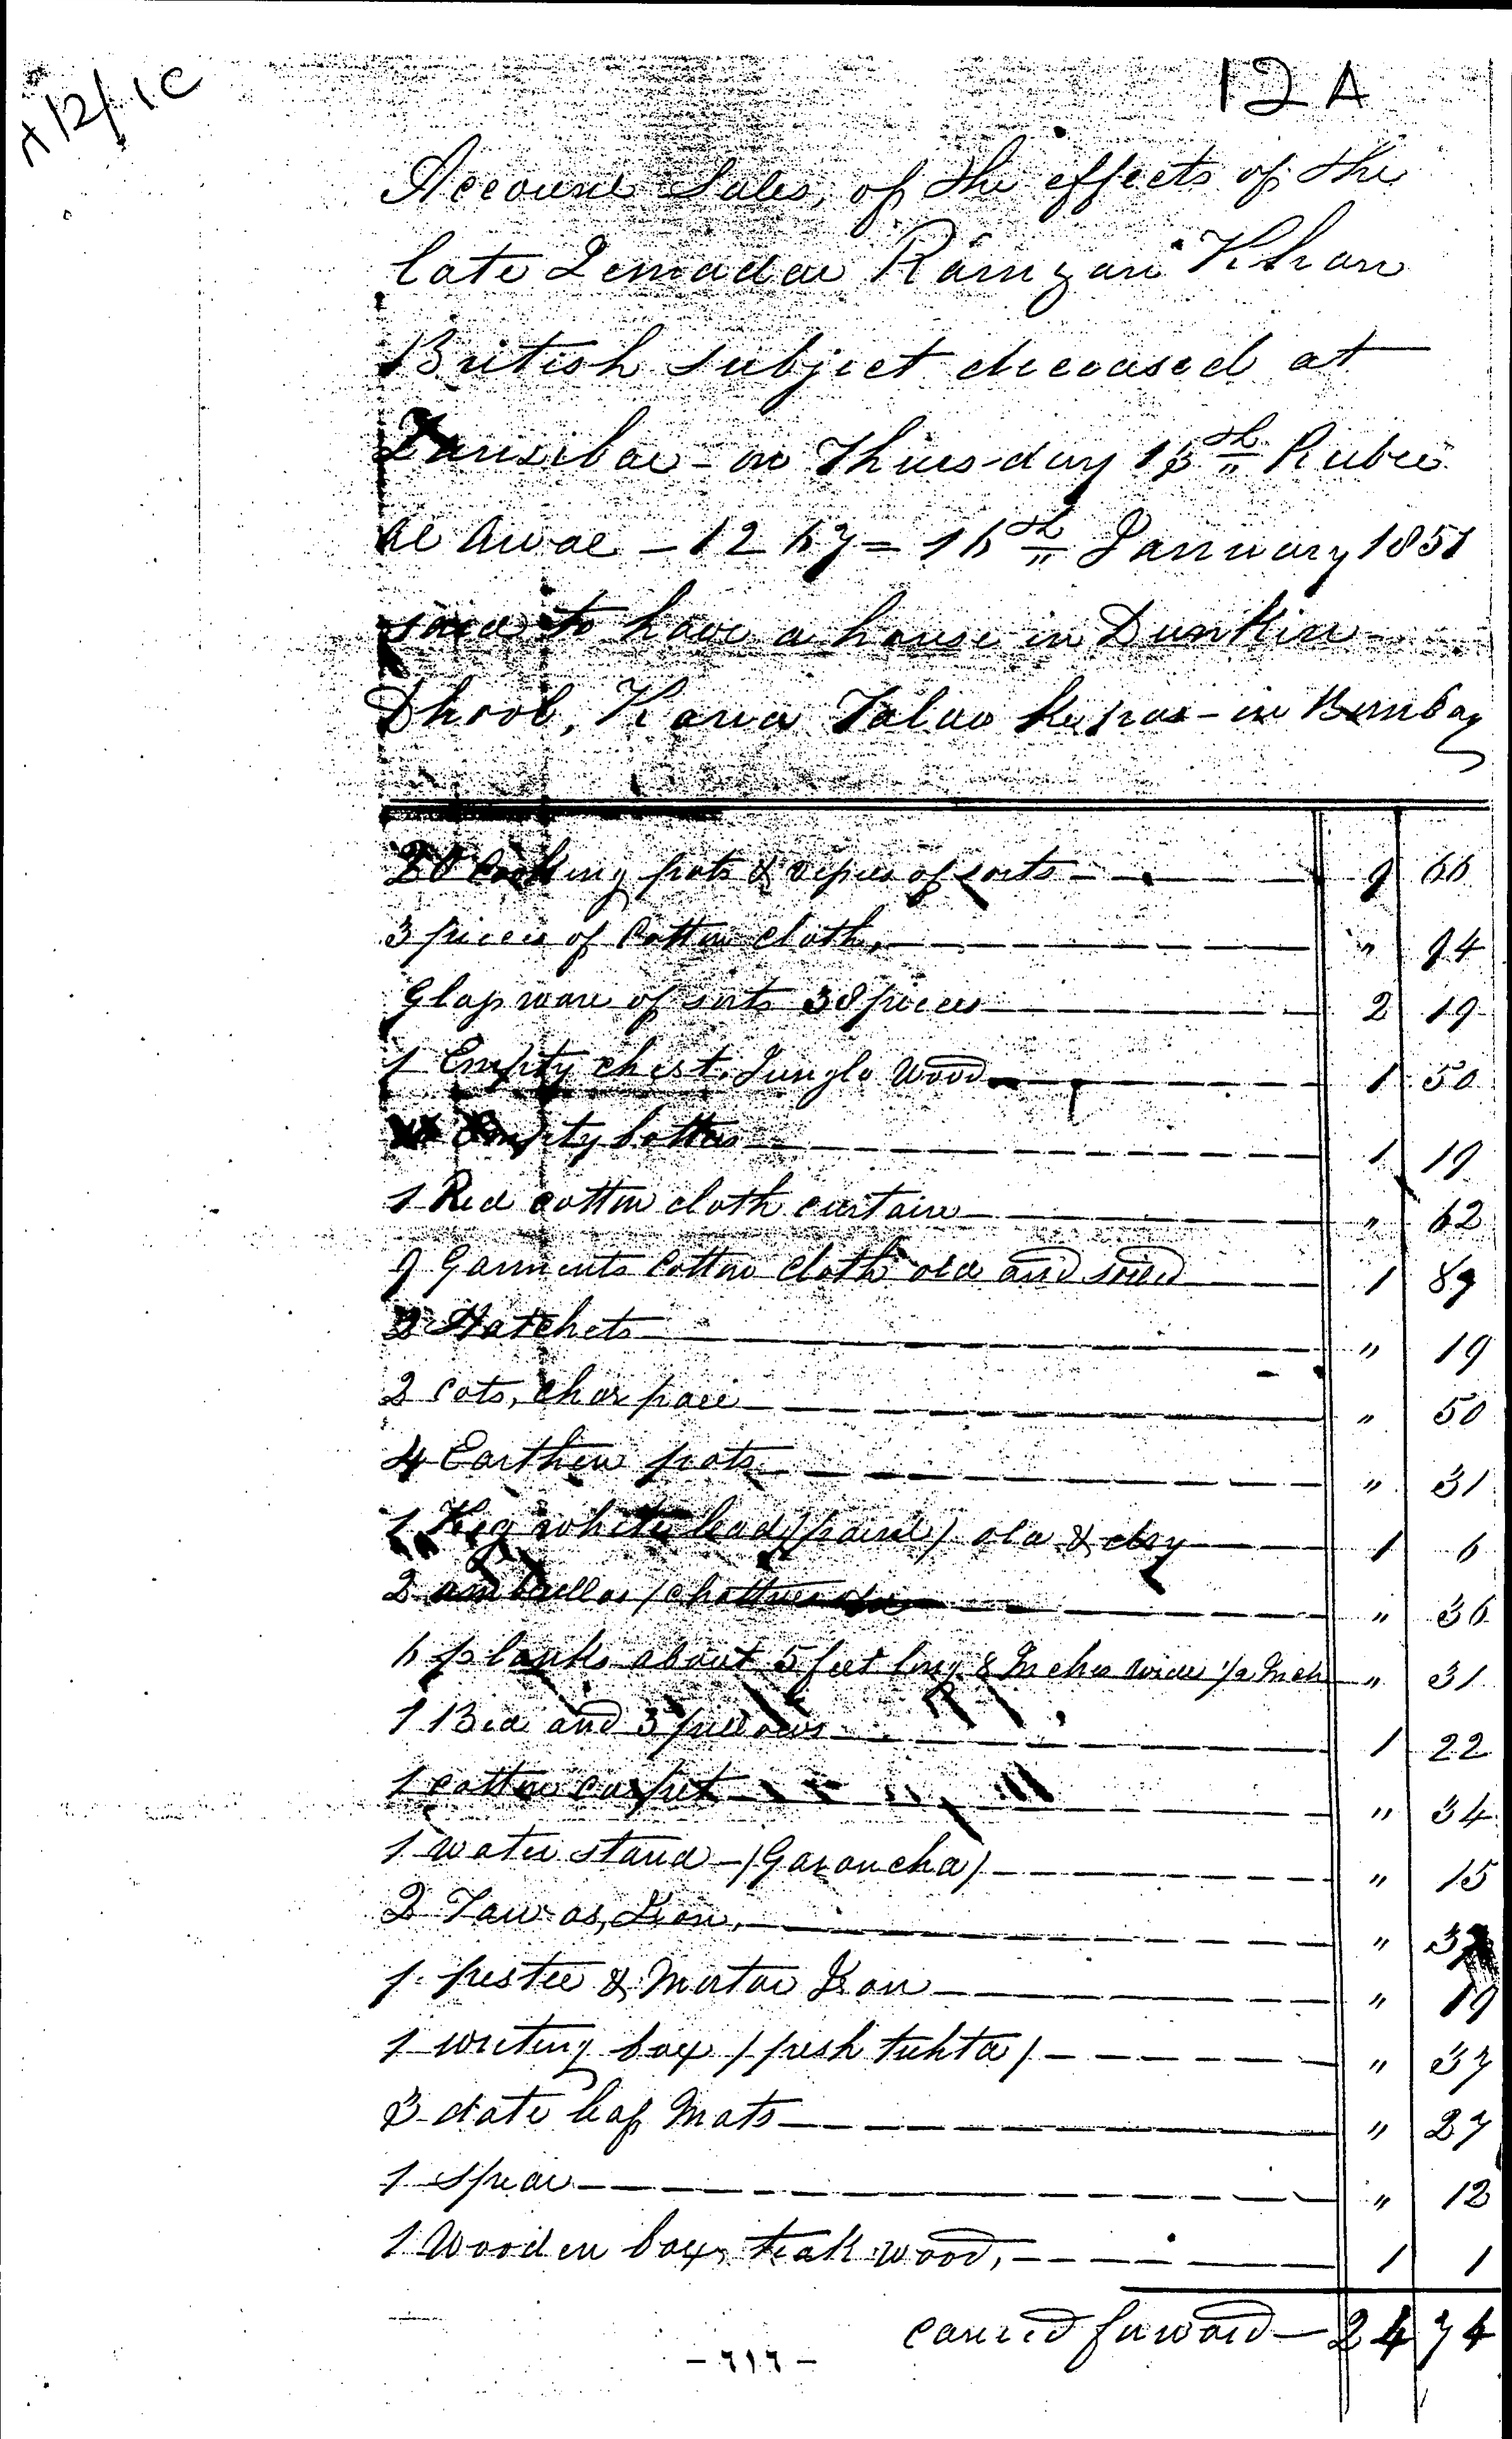 A12/1C
12A
Account Sales, of the effects of the
late Jemadar Ramzan Khan
British subject deceased at
Zanzibar - on Thursday 13th Rubee
al Awal - 1267 = 16th January 1851
said to have a house in Dunkin
Dhool, Kawa Talao ke pas - in Bombay
20 Cooking pots & of sorts 9 66
3 pieces of Cotton cloth, " 94
Glass ware of sorts 38 pieces 2 19
1 Empty chest. Jungle Wood 1 50
Empty bottles 1 19
1 Red cotton cloth curtain " 62
9 Garments Cotton cloth old and soiled 1 89
3 Hatchets " 19
2 cots, charpaee " 50
4 Earthen pots " 31
1 Keg white lead (paint) old & dry 1 6
2 umbrellas / " 36
6 planks about 5 feet long 8 Inches wide 1/2 Inch " 31
1 Bed and 3 pillows 1 22
1 cotton carpet " 34
1 water stand - (Garoncha) " 15
2 Tawas, Iron, "
1 pestle & Mortar Iron " 19
1 writing box (pesh tukhta) " 37
3 date leaf Mats " 27
1 spear " 12
1 Wooden box, teak wood, 1 1
carried forward 24 74
- ٦١٦ -